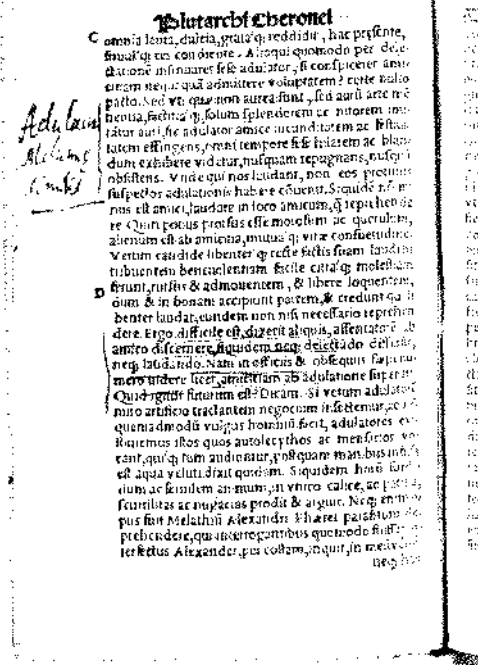 Plutarchi Cheronei
C omnia leuia, dulcia, grata q; reddidit, hac presente,
simul q; eis condiente. Alioqui quomodo per dele-
ctationē insinuaret sese adulator, si conspiceret ami-
citiam nequaquā admittere voluptatem? certe nullo
pacto. Sed vt quæ non aurea sunt, sed auri arte mē
tientia, facticia q; solum splendorem ac nitorem imi
tātur auri, sic adulator amice iucunditatem ac festiui
tatem effingens, omni tempore sese hilarem ac blan
dum exhibere videtur, nusquam repugnans, nusquā
obsistens. Vnde qui nos laudant, non eos protinus
suspectos adulationis habere cōuenit. Siquidē nō mi
nus est amici, laudare in loco amicum, q̄ reprehende
re. Quin potius prorsus esse morosum ac querulum,
alienum est ab amicitia, mutua q; vitæ consuetudine.
Verum candide libenter q; recte factis suam laudem
tribuentem beneuolentiam facile citra q; molestiam
ferunt, rursus & admouentem, & libere loquentem,
D dum & in bonam accipiunt partem, & credunt qui li
benter laudat, eundem non nisi necessario reprehen
dere. Ergo difficile est, dixerit aliquis, assentatorē ab
amico discernere, siquidem neq; delectādo differunt,
neq; laudando. Nam in officiis & obsequiis sæpenu
mero videre licet, amicitiam ab adulatione superari.
Quid igitur futurum est? Dicam. Si verum adulatorē
miro artificio tractantem negocium insectemur, ac
quemadmodū vulgus hominū facit, adulatores
istos quos autolecythos ac mensarios vo
cant, qui q; tum audiuntur, postquam manibus infusa
est aqua veluti dixit quidam. Siquidem horū
ac animum, in vnico calice, ac
scurrilitas ac nugacitas prodit & arguit. Neq; enim
pus fuit Melathiū Alexandri Pheræi parasitum de
prehendere, qui interrogantibus quomodo fuisset in
terfectus Alexander, per costam, inquit, in meū
neq;
Adulatorū